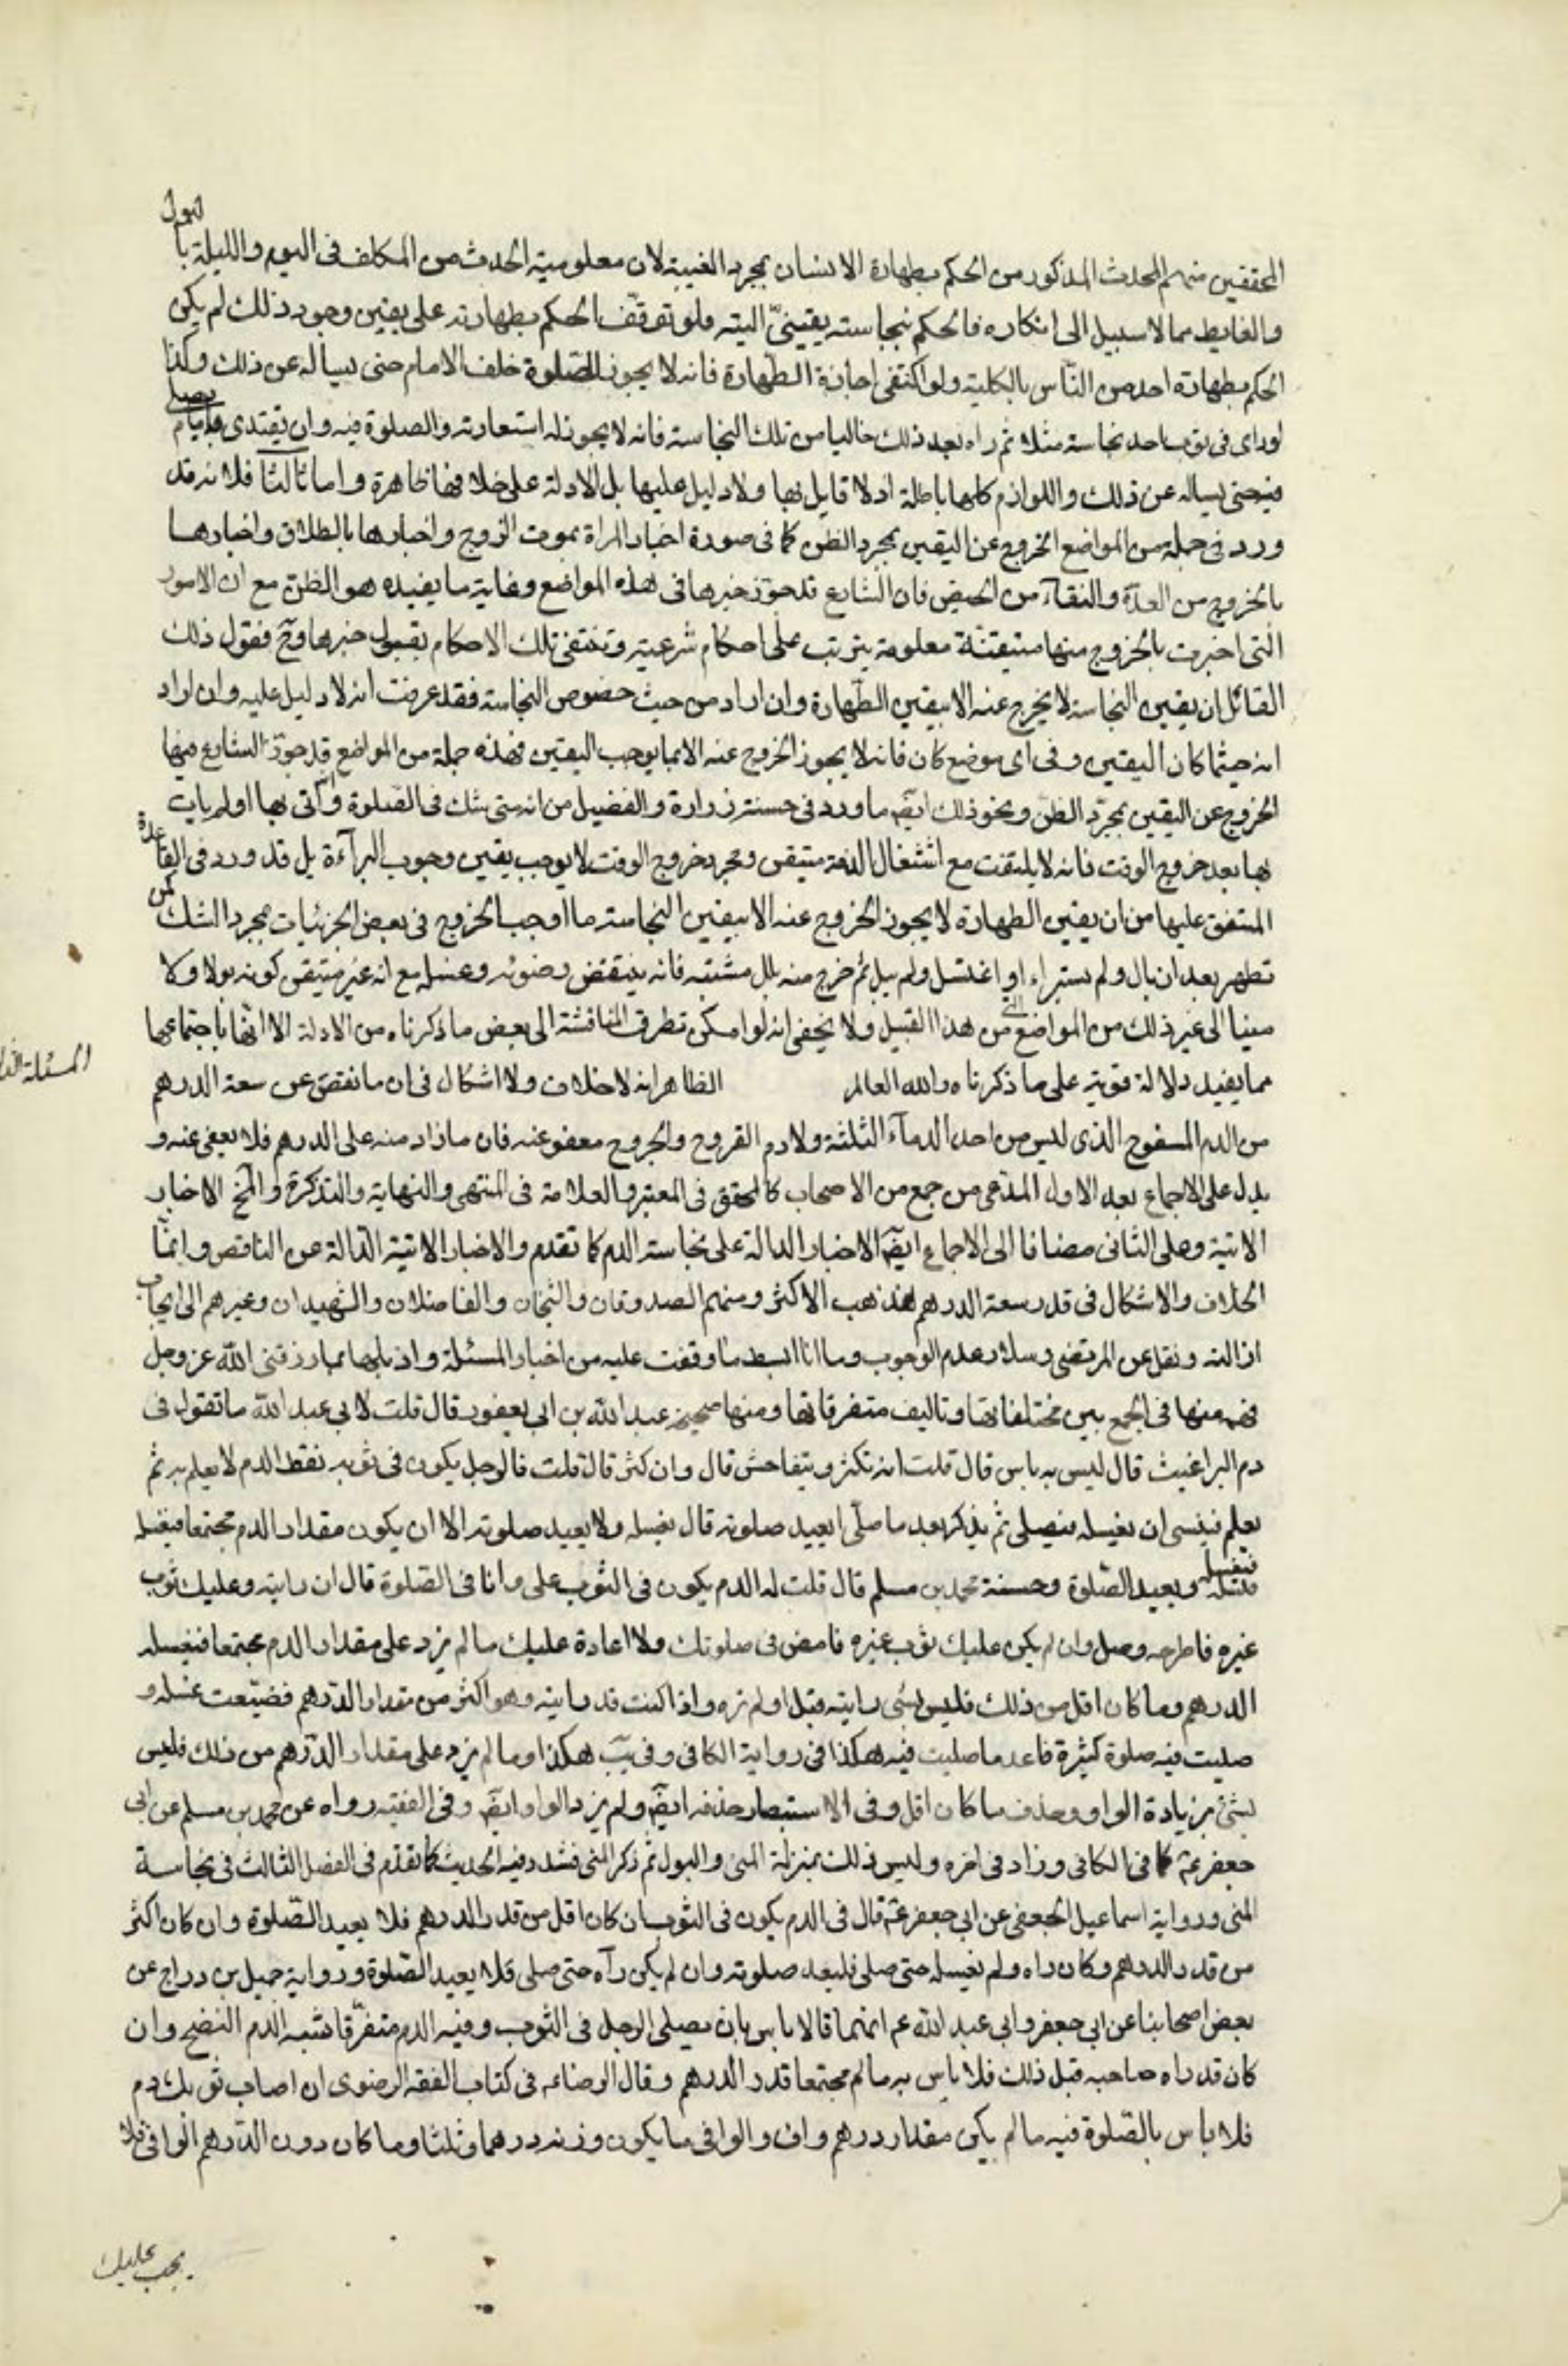 المحققين منهم المحدث المذكور من الحكم بطهارة الانسان بمجرد الغيبة لان معلومية الحدث من المكلف فى اليوم والليلة بالبول
والغايط مما لا سبيل الى انكاره فالحكم بنجاسته يقينىّ البتة فلو توقّف الحكم بطهارته على يقين وجود ذلك لم يكن
الحكم بطهارة احد من النّاس بالكلية ولو اكتفى اجازة الطّهارة فانه لا يجوز الصّلوة خلف الامام حتى يساله عن ذلك وكذا
لوراى فى ثوب احد نجاسة مثلا ثم راه بعد ذلك خاليا من تلك النجاسة فانه لا يجوز له استعارته والصلوة فيه وان يقتدى بامام يصلى
فيه حتى يساله عن ذلك واللوازم كلها باطلة اذ لا قايل بها ولا دليل عليها بل الادلة على خلافها ظاهرة واما ثالثا فلانه قد
ورد فى جملة من المواضع الخروج عن اليقين بمجرد الظن كما فى صورة اخبار المراة بموت الزوج واخبارها بالطلاق واخبارها
بالخروج من العدّة والنقاء من الحيض فان الشارع قد جوّز خبرها فى هذه المواضع وغاية ما يفيده هو الظن مع ان الامور
التى اخبرت بالخروج منها متيقنة معلومة يترتب على احكام شرعية وتنتفى تلك الاحكام بقبول خبرها وح فقول ذلك
القائل ان يقين النجاسة لا يخرج عنه الا بيقين الطّهارة وان اراد من حيث خصوص النجاسة فقد عرفت انه لا دليل عليه وان اراد
انه حيثما كان اليقين وفى اى موضع كان فانه لا يجوز الخروج عنه الا بما يوجب اليقين فهذه جملة من المواضع قد جوّز الشارع فيها
الخروج عن اليقين بمجرّد الظنّ ونحو ذلك ايضّ ما ورد فى حسنة زرارة والفضيل من انه متى شك فى الصّلوة أاتى بها او لم يات
بها بعد خروج الوقت فانه لا يلتفت مع اشتغال الذمة متيقن ومجرد خروج الوقت لا يوجب يقين وجوب البرآءة بل قد ورد فى القاعدة
المتفق عليها من ان يقين الطهارة لا يجوز الخروج عنه الا بيقين النجاسة ما اوجب الخروج فى بعض الجزئيات بمجرد الشك كمن
تطهر بعد ان بال ولم يستبراء او اغتسل ولم يبل ثم خرج منه بلل مشتبه فانه ينتقض وضوئه وغسله مع انه غير متيقن كونه بولا وكا
منيا الى غير ذلك من المواضع التى من هذا القبيل ولا يخفى انه لو امكن تطرق المناقشة الى بعض ما ذكرناه من الادلة الا انّها باجتماعها
مما يفيد دلالة قوية على ما ذكرناه والله العالم الظاهر انه لا خلاف ولا اشكال فى ان ما نقص عن سعة الدرهم
من الدم المسفوح الذى ليس من احد الدمآء الثلثة ولا دم القروح والجروح معفو عنه فان ما زاد منه على الدرهم فلا يعفى عنه و
يدل على الاجماع بعد الاول المدّعى من جمع من الاصحاب كالمحقق فى المعتبر والعلامة فى المنتهى والنهاية والتذكرة والمخ الاخبار
الاتية وعلى الثانى مضافا الى الاجماع ايضّ الاخبار الدالة على نجاسة الدم كما تقدم والاخبار الاتية الدّالة عن الناقص وانمّا
الخلاف والاشكال فى قدر سعة الدرهم فذهب الاكثر ومنهم الصدوقان والشيخان والفاضلان والشهيدان وغيرهم الى ايجاب
ازالته ونقل عن المرتضى وسلار عدم الوجوب وها انا ابسط ما وقفت عليه من اخبار المسئلة واذيلها بما رزقنى اللّه عز وجل
فهمه منها فى الجمع بين مختلفاتها وتاليف متفرقاتها ومنها صحيحة عبد اللّه بن ابى يعفور قال قلت لابى عبد اللّه ما تقول فى
دم البراغيث قال ليس به باس قال قلت انه تكثر ويتفاحش قال وان كثر قال قلت فالرجل يكون فى ثوبه نقط الدم لا يعلم به ثم
يعلم فينسى ان يغسله فيصلى ثم يذكر بعد ما صلّى ايعيد صلوته قال يغسله ولا يعيد صلوته الا ان يكون مقدار الدم مجتمعا فيغسله
فيغسله ويعيد الصّلوة وحسنة محمد بن مسلم قال قلت له الدم يكون فى الثوب على وانا فى الصّلوة قال ان رايته وعليك ثوب
غيره فاطرحه وصل وان لم يكن عليك ثوب غيره فامض فى صلوتك ولا اعادة عليك ما لم يزد على مقدار الدم مجتمعا فيغسله
الدرهم وما كان اقل من ذلك فليس بشى رايته قبل او لم تره واذا كنت قد رايته وهو اكثر من مقدار الدّرهم فضيّعت غسله و
صليت فيه صلوة كثيرة فاعد ما صليت فيه هكذا فى رواية الكافى وفى يب هكذا وما لم يزد على مقدار الدّرهم من ذلك فليس
بشئ بزيادة الواو وحذف ما كان اقل وفى الاستبصار حذفه ايضّ ولم يزد الواو ايضّ وفى الفقيه رواه عن محمد بن مسلم عن ابى
جعفر ع كما فى الكافى وزاد فى اخره وليس ذلك بمنزلة المنى والبول ثم ذكر المنى فشدد فيه الحديث كما تقدّم فى الفصل الثالث فى نجاسة
المنى ورواية اسماعيل الجعفى عن ابى جعفر ع قال فى الدم يكون فى الثوب ان كان اقل من قدر الدرهم فلا يعيد الصّلوة وان كان اكثر
من قدر الدرهم وكان راه ولم يغسله حتى صلى فليعد صلوته وان لم يكن رآه حتى صلى فلا يعيد الصّلوة ورواية جميل بن دراج عن
بعض اصحابنا عن ابى جعفر وابى عبد اللّه عم انهما قالا لا باس بان يصلى الرجل فى الثوب وفيه الدم متفرّقا شبه الدم النضح وان
كان قد راه صاحبه قبل ذلك فلا باس به ما لم مجتمعا قدر الدرهم وقال الرضا ع فى كتاب الفقه الرضوى ان اصاب ثوبك دم
فلا باس بالصّلوة فيه ما لم يكن مقدار درهم واف والوافى ما يكون وزنه درهما وثلثا وما كان دون الدّرهم الوافى فلا
يجب عليك
المسئلة